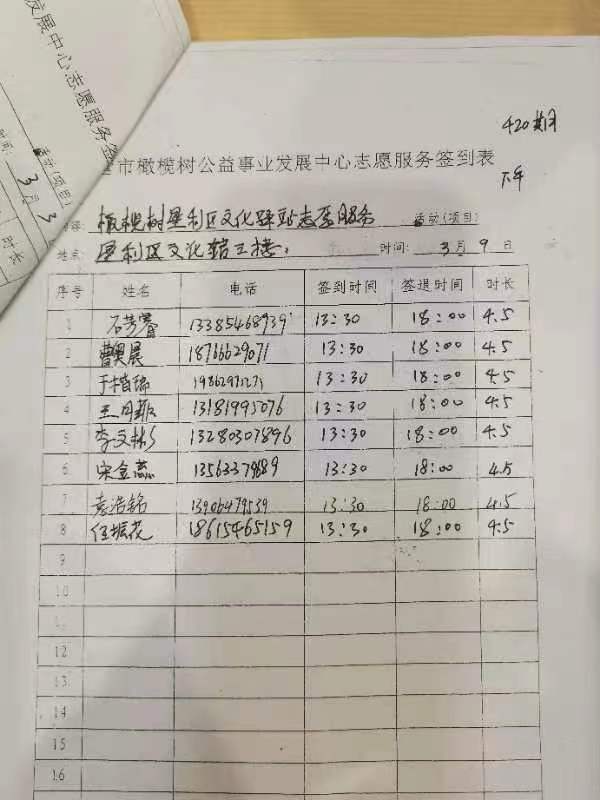 发展中心志愿服务签
活动(项目)
时间: 3月3
时长
420期
营市橄榄树公益事业发展中心志愿服务签到表
下午
橄榄树垦利区文化驿站志愿服务 活动(项目)
地点: 垦利区文化馆三楼 时间: 3月9日
序号 姓名 电话 签到时间 签退时间 时长
1 13385468939 13:30 18:00 4.5
2 曹奥晨 18766629071 13:30 18:00 4.5
3 13:30 18:00 4.5
4 13181995076 13:30 18:00 4.5
5 李文彬 13280307896 13:30 18:00 4.5
6 宋金蕊 13563379889 13:30 18:00 4.5
7 袁浩铭 13906479539 13:30 18:00 4.5
8 任振花 18615465159 13:30 18:00 4.5
9
10
11
12
13
14
15
16